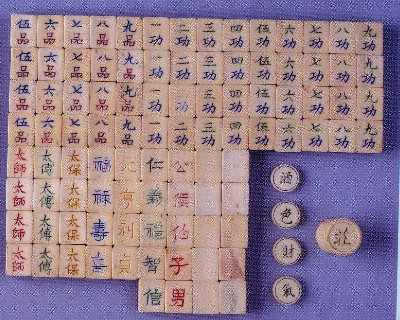 伍品 六品 七品 八品 九品 一功 二功 三功 四功 伍功 六功 七功 八功 九功
伍品 六品 七品 八品 九品 一功 二功 三功 四功 伍功 六功 七功 八功 九功
伍品 六品 七品 八品 九品 一功 二功 三功 四功 伍功 六功 七功 八功 九功
伍品 六品 七品 八品 九品 一功 二功 三功 四功 伍功 六功 七功 八功 九功
太師 太傅 太保 福 元 仁 公
太師 太傅 太保 祿 亨 義 侯
太師 太傅 太保 壽 利 禮 伯
太師 太傅 太保 喜 貞 智 子
信 男
酒
色
財
氣